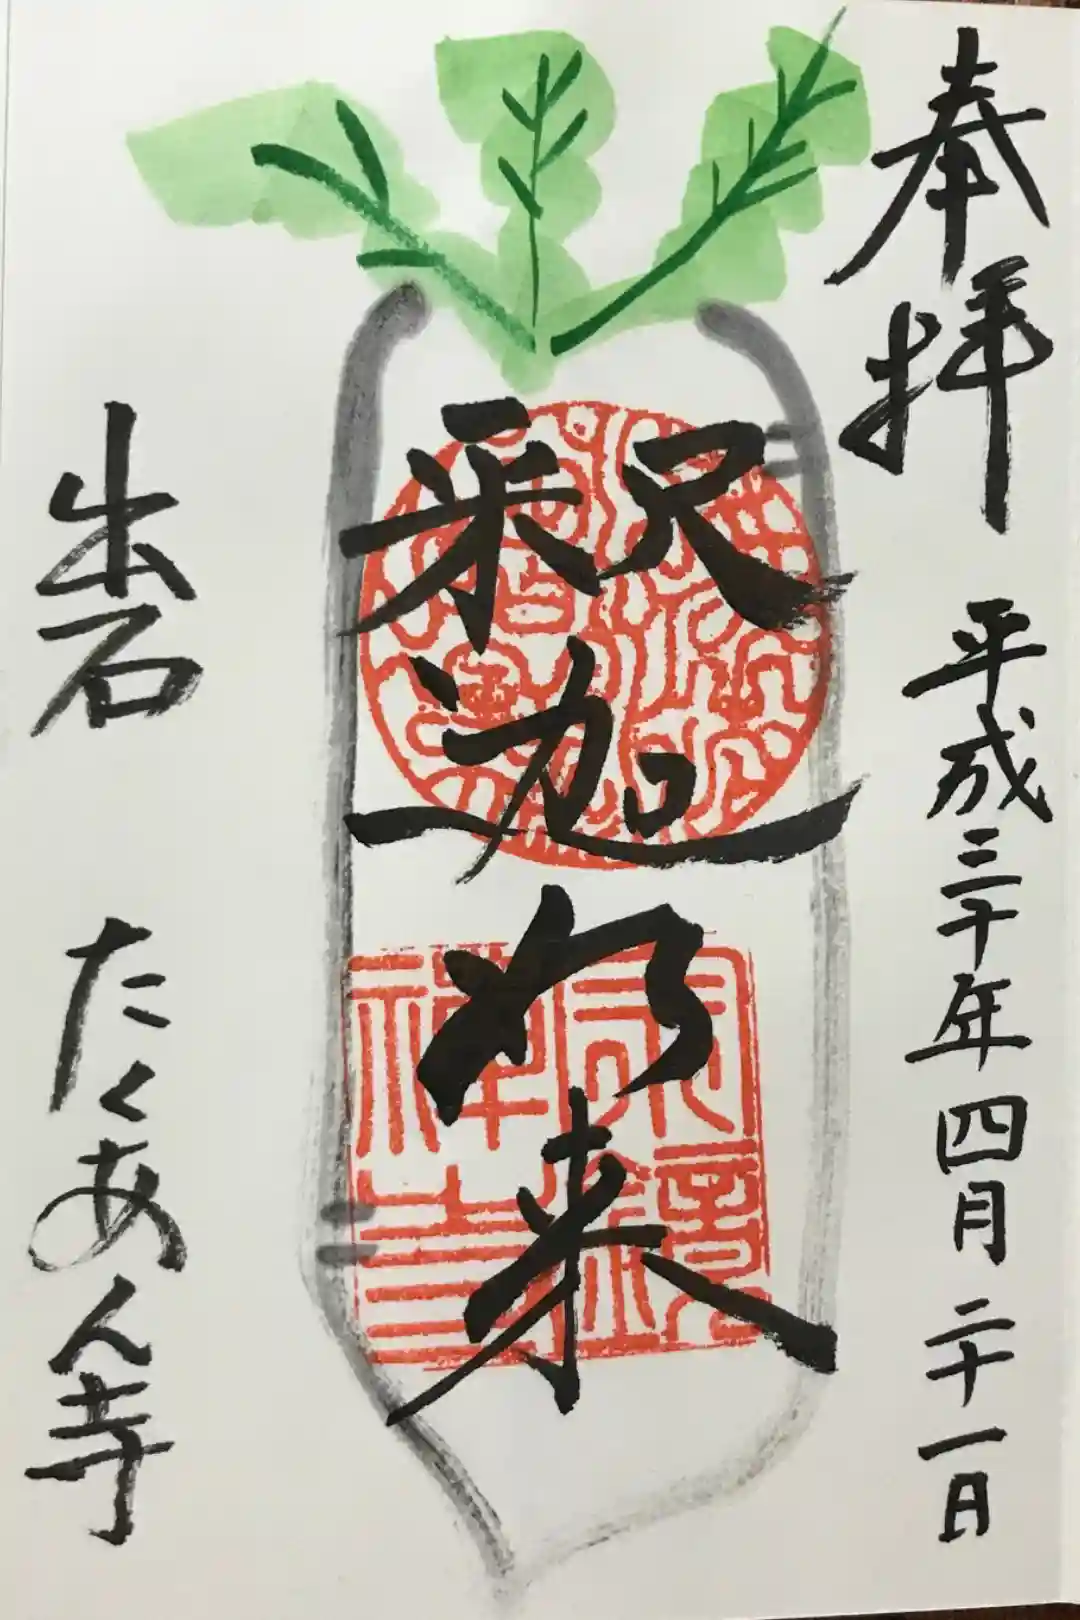 奉拝　平成三十年四月二十一日
釈迦如来
出石　たくあん寺